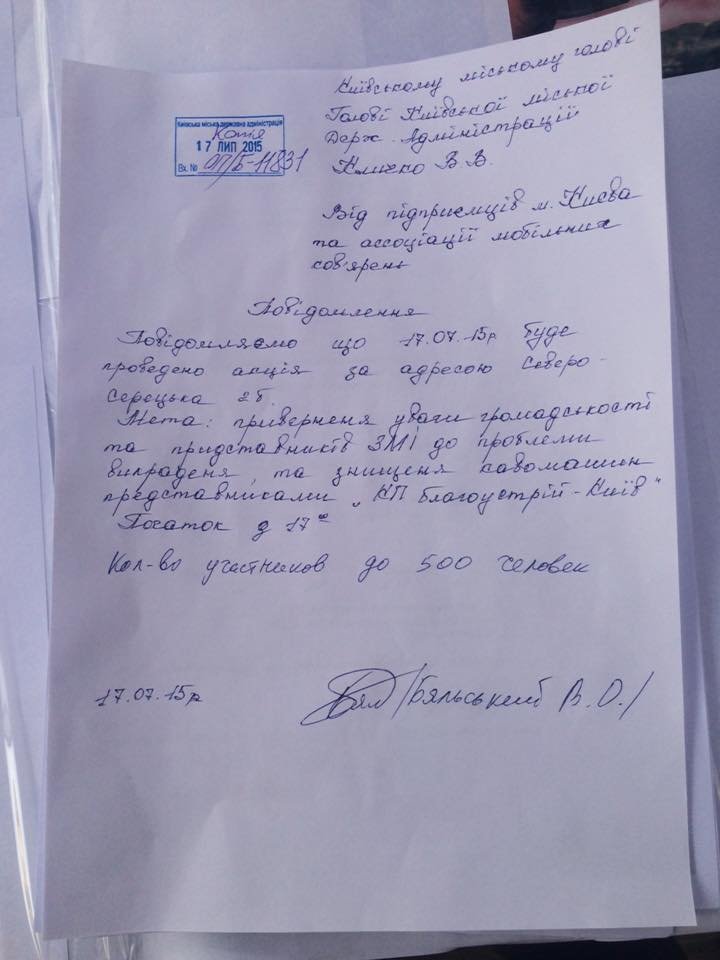 Київському міському голові
Голові Київської міської
Держ. Адміністрацій
Кличко В.В.
Київська міська державна адміністрація
Копія
17 ЛИП 2015
Вх. № ОП/Б-11831
Від підприємців м. Києва
та ассоціації мобільних
кав'ярень
Повідомлення
Повідомляємо що 17.07.15р буде
проведено акція за адресою Северо-
Серецька 2б.
Мета: приверненя уваги громадськості
та придставників ЗМІ до проблеми
викраденя та знищеня кавомашин
представниками „КП благоустрій-Київ"
Початок з 17⁰⁰
Кол-во участников до 500 человек
17.07.15р
/Бяльський В.О./